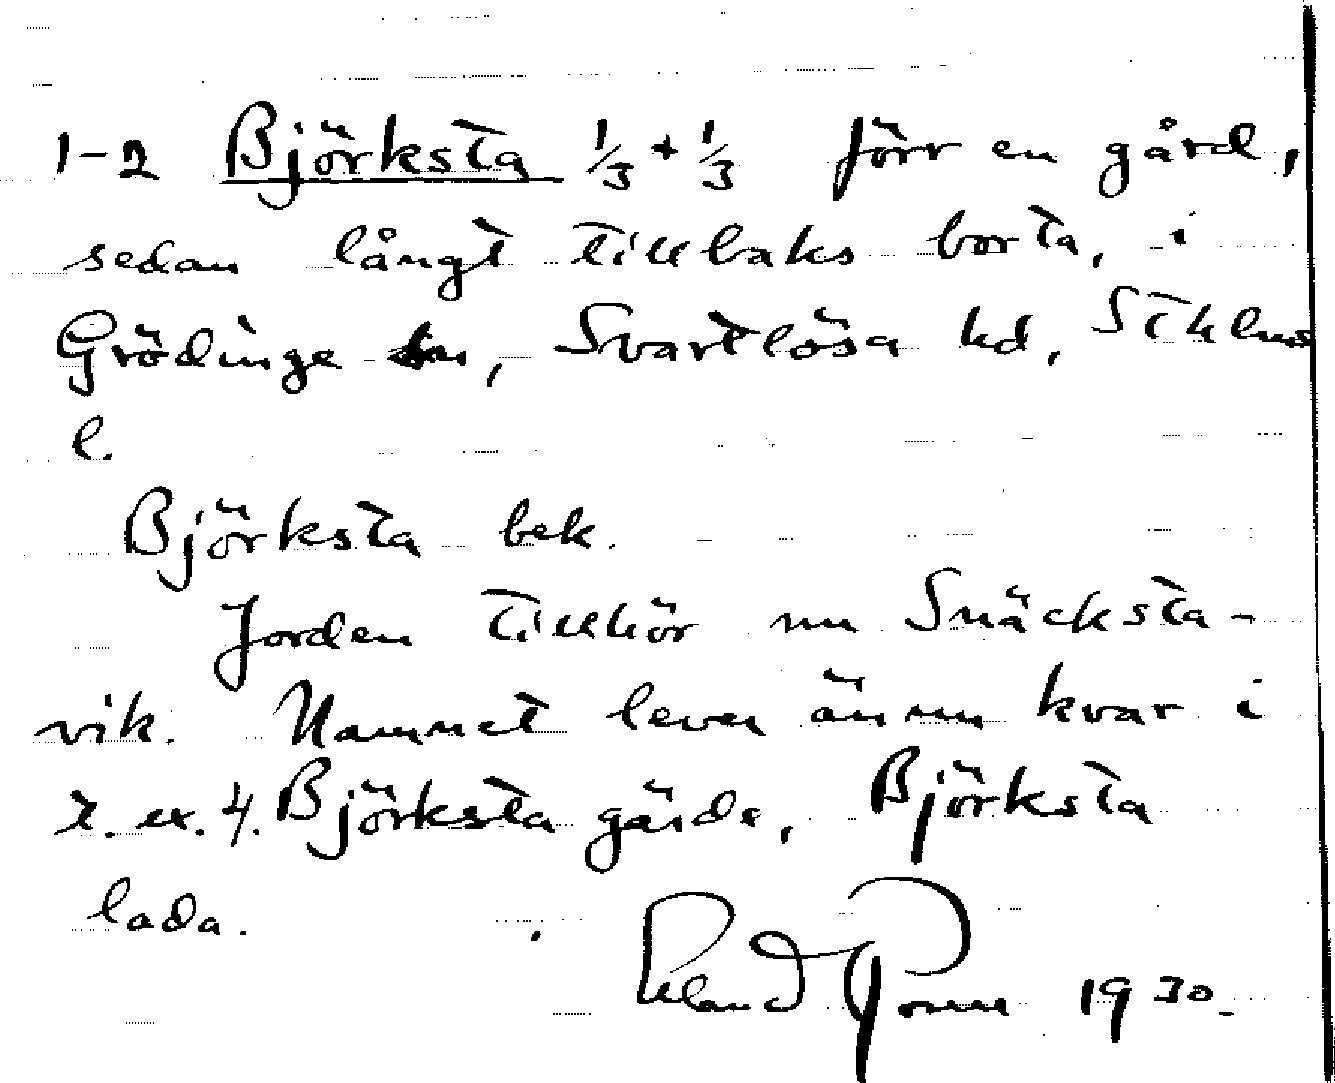 1-2 Björksta 1/3 + 1/3 förr en gård,
sedan långt tillbaks borta, i
Grödinge sn, Svartlösa hd, Sthlms
l.
Björksta bek.
Jorden tillhör nu Snäcksta-
vik. Namnet lever ännu kvar i
t. ex. 4. Björksta gärde, Björksta
lada.
1930.